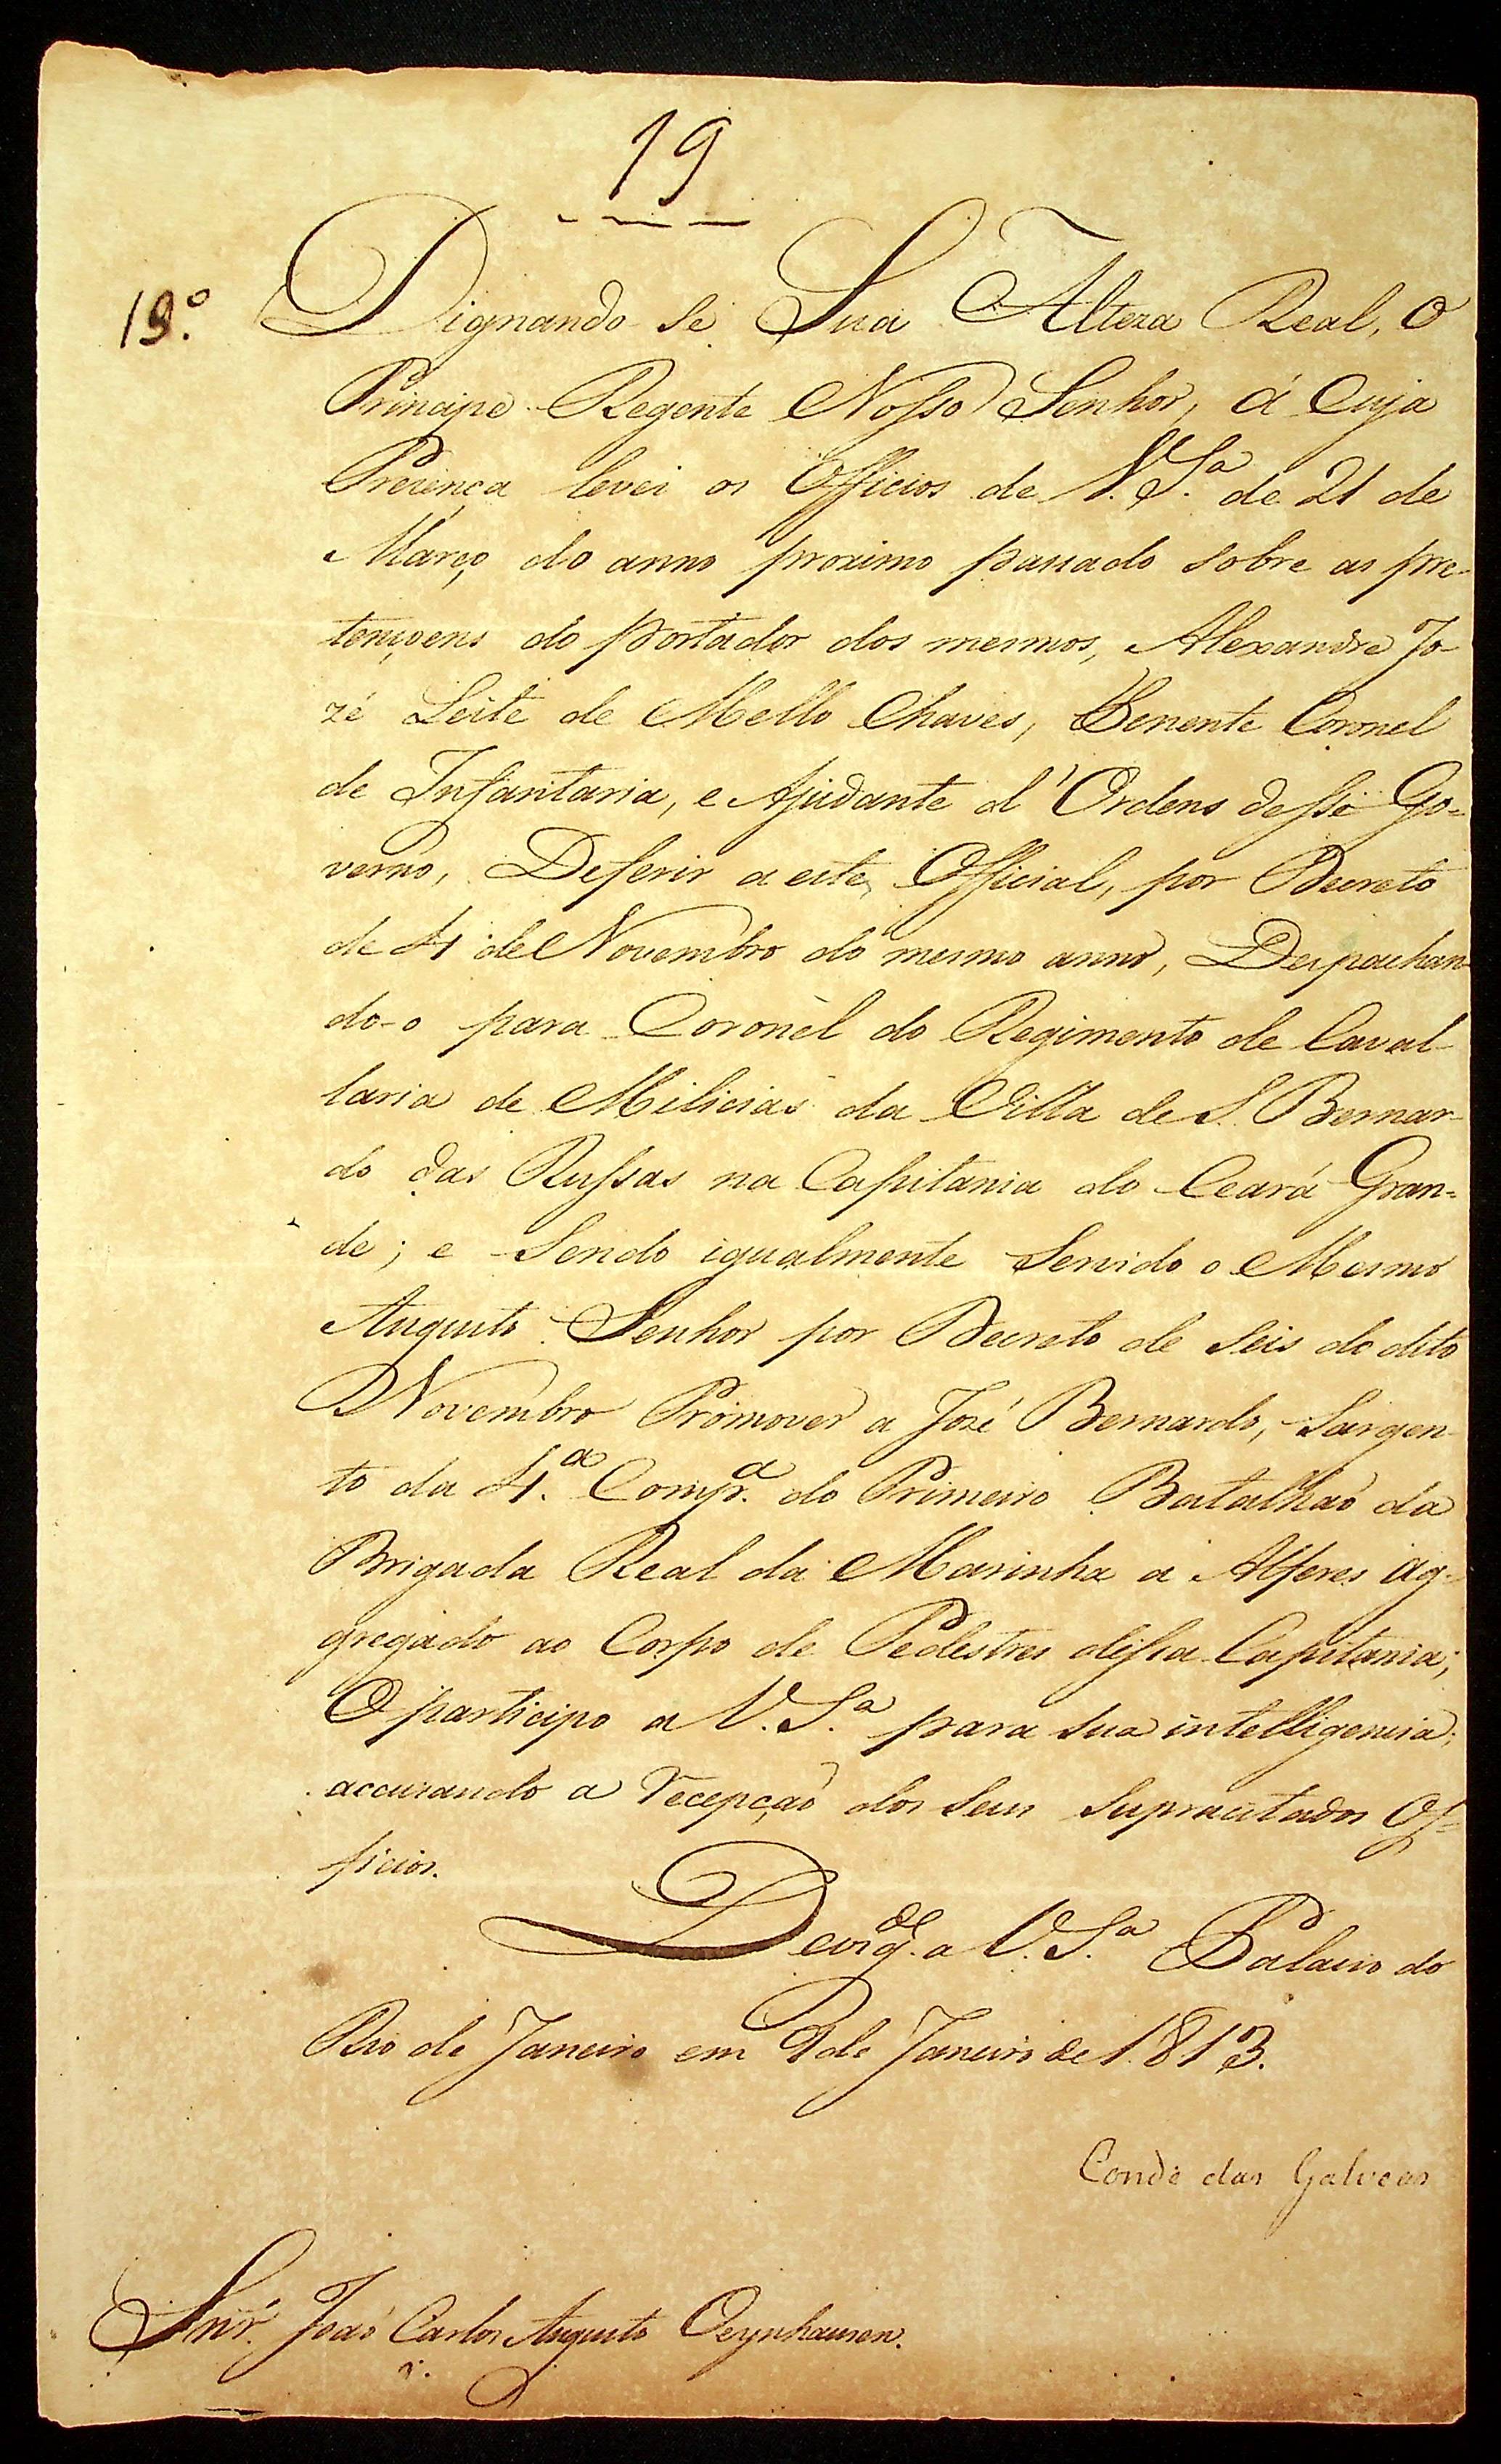 19
19.º
Dignando-se Sua Alteza Real, O
Principe Regente Nosso Senhor, á Cuja
Prezença levei os Officios de V. S.ª de 21 de
Março do anno proximo passado sobre as pre-
tençoens do portador dos mesmos, Alexandre Jo-
zé Leite de Mello Chaves, Tenente Coronel
de Infantaria, e Ajudante d'Ordens desse Go-
verno, Deferir a este Official, por Decreto
de 4 de Novembro do mesmo anno, Despachan-
do-o para Coronel do Regimento de Caval-
laria de Milicias da Villa de S. Bernar-
do das Russas na Capitania do Ceará Gran-
de; e Sendo igualmente Servido o Mesmo
Augusto Senhor por Decreto de seis do dito
Novembro Promover a José Bernardo, Sargen-
to da 4.ª Comp.ª do Primeiro Batalhaõ da
Brigada Real da Marinha a Alferes ag-
gregado ao Corpo de Pedestres dessa Capitania;
O participo a V. S.ª para sua intelligencia;
accusando a recepçaõ dos seus supracitados Of-
ficios.
Deos g.de a V. S.ª Palacio do
Rio de Janeiro em 9 de Janeiro de 1813.
Conde das Galveas
Snr. Joaõ Carlos Augusto Oeynhausen.